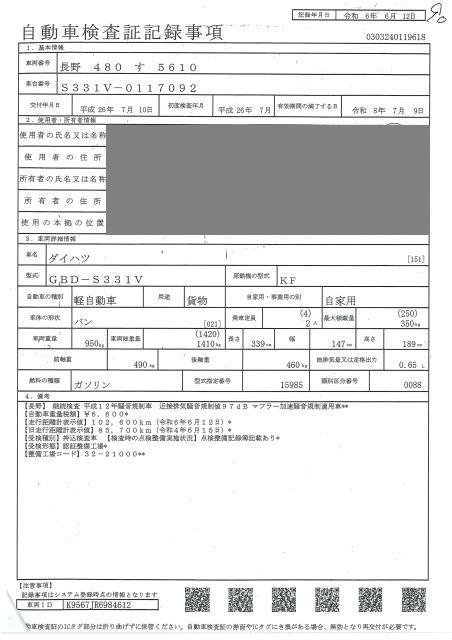 記録年月日 令和 6年 6月 12日
自動車検査証記録事項
0303240119618
1.基本情報
車両番号 長野 480 す 5610
車台番号 S331V-0117092
交付年月日 平成26年 7月 10日 初度検査年月 平成26年 7月 有効期間の満了する日 令和 8年 7月 9日
2.使用者・所有者情報
使用者の氏名又は名称
使用者の住所
所有者の氏名又は名称
所有者の住所
使用の本拠の位置
3.車両詳細情報
車名 ダイハツ [151]
型式 GBD-S331V 原動機の型式 KF
自動車の種別 軽自動車 用途 貨物 自家用・事業用の別 自家用
車体の形状 バン [021] 乗車定員 (4) 2人 最大積載量 (250) 350kg
車両重量 950kg 車両総重量 (1420) 1410kg 長さ 339cm 幅 147cm 高さ 189cm
前軸重 490kg 後軸重 460kg 総排気量又は定格出力 0.65 L
燃料の種類 ガソリン 型式指定番号 15985 類別区分番号 0088
4.備考
【長野】 継続検査 平成12年騒音規制車 近接排気騒音規制値97dB マフラー加速騒音規制適用車**
【自動車重量税額】¥6,600*
【走行距離計表示値】102,600km(令和6年6月12日)*
【旧走行距離計表示値】85,700km(令和4年6月15日)*
【受検種別】持込検査車 【検査時の点検整備実施状況】点検整備記録簿記載あり*
【受検形態】認証整備工場*
【整備工場コード】32-21000**
【注意事項】
記録事項はシステム登録時点の情報となります
車両ID K9567JR6984612
動車検査証のICタグ部分は折り曲げずに保管ください。自動車検査証の券面やICタグにき損がある場合、無効となり再交付が必要です。